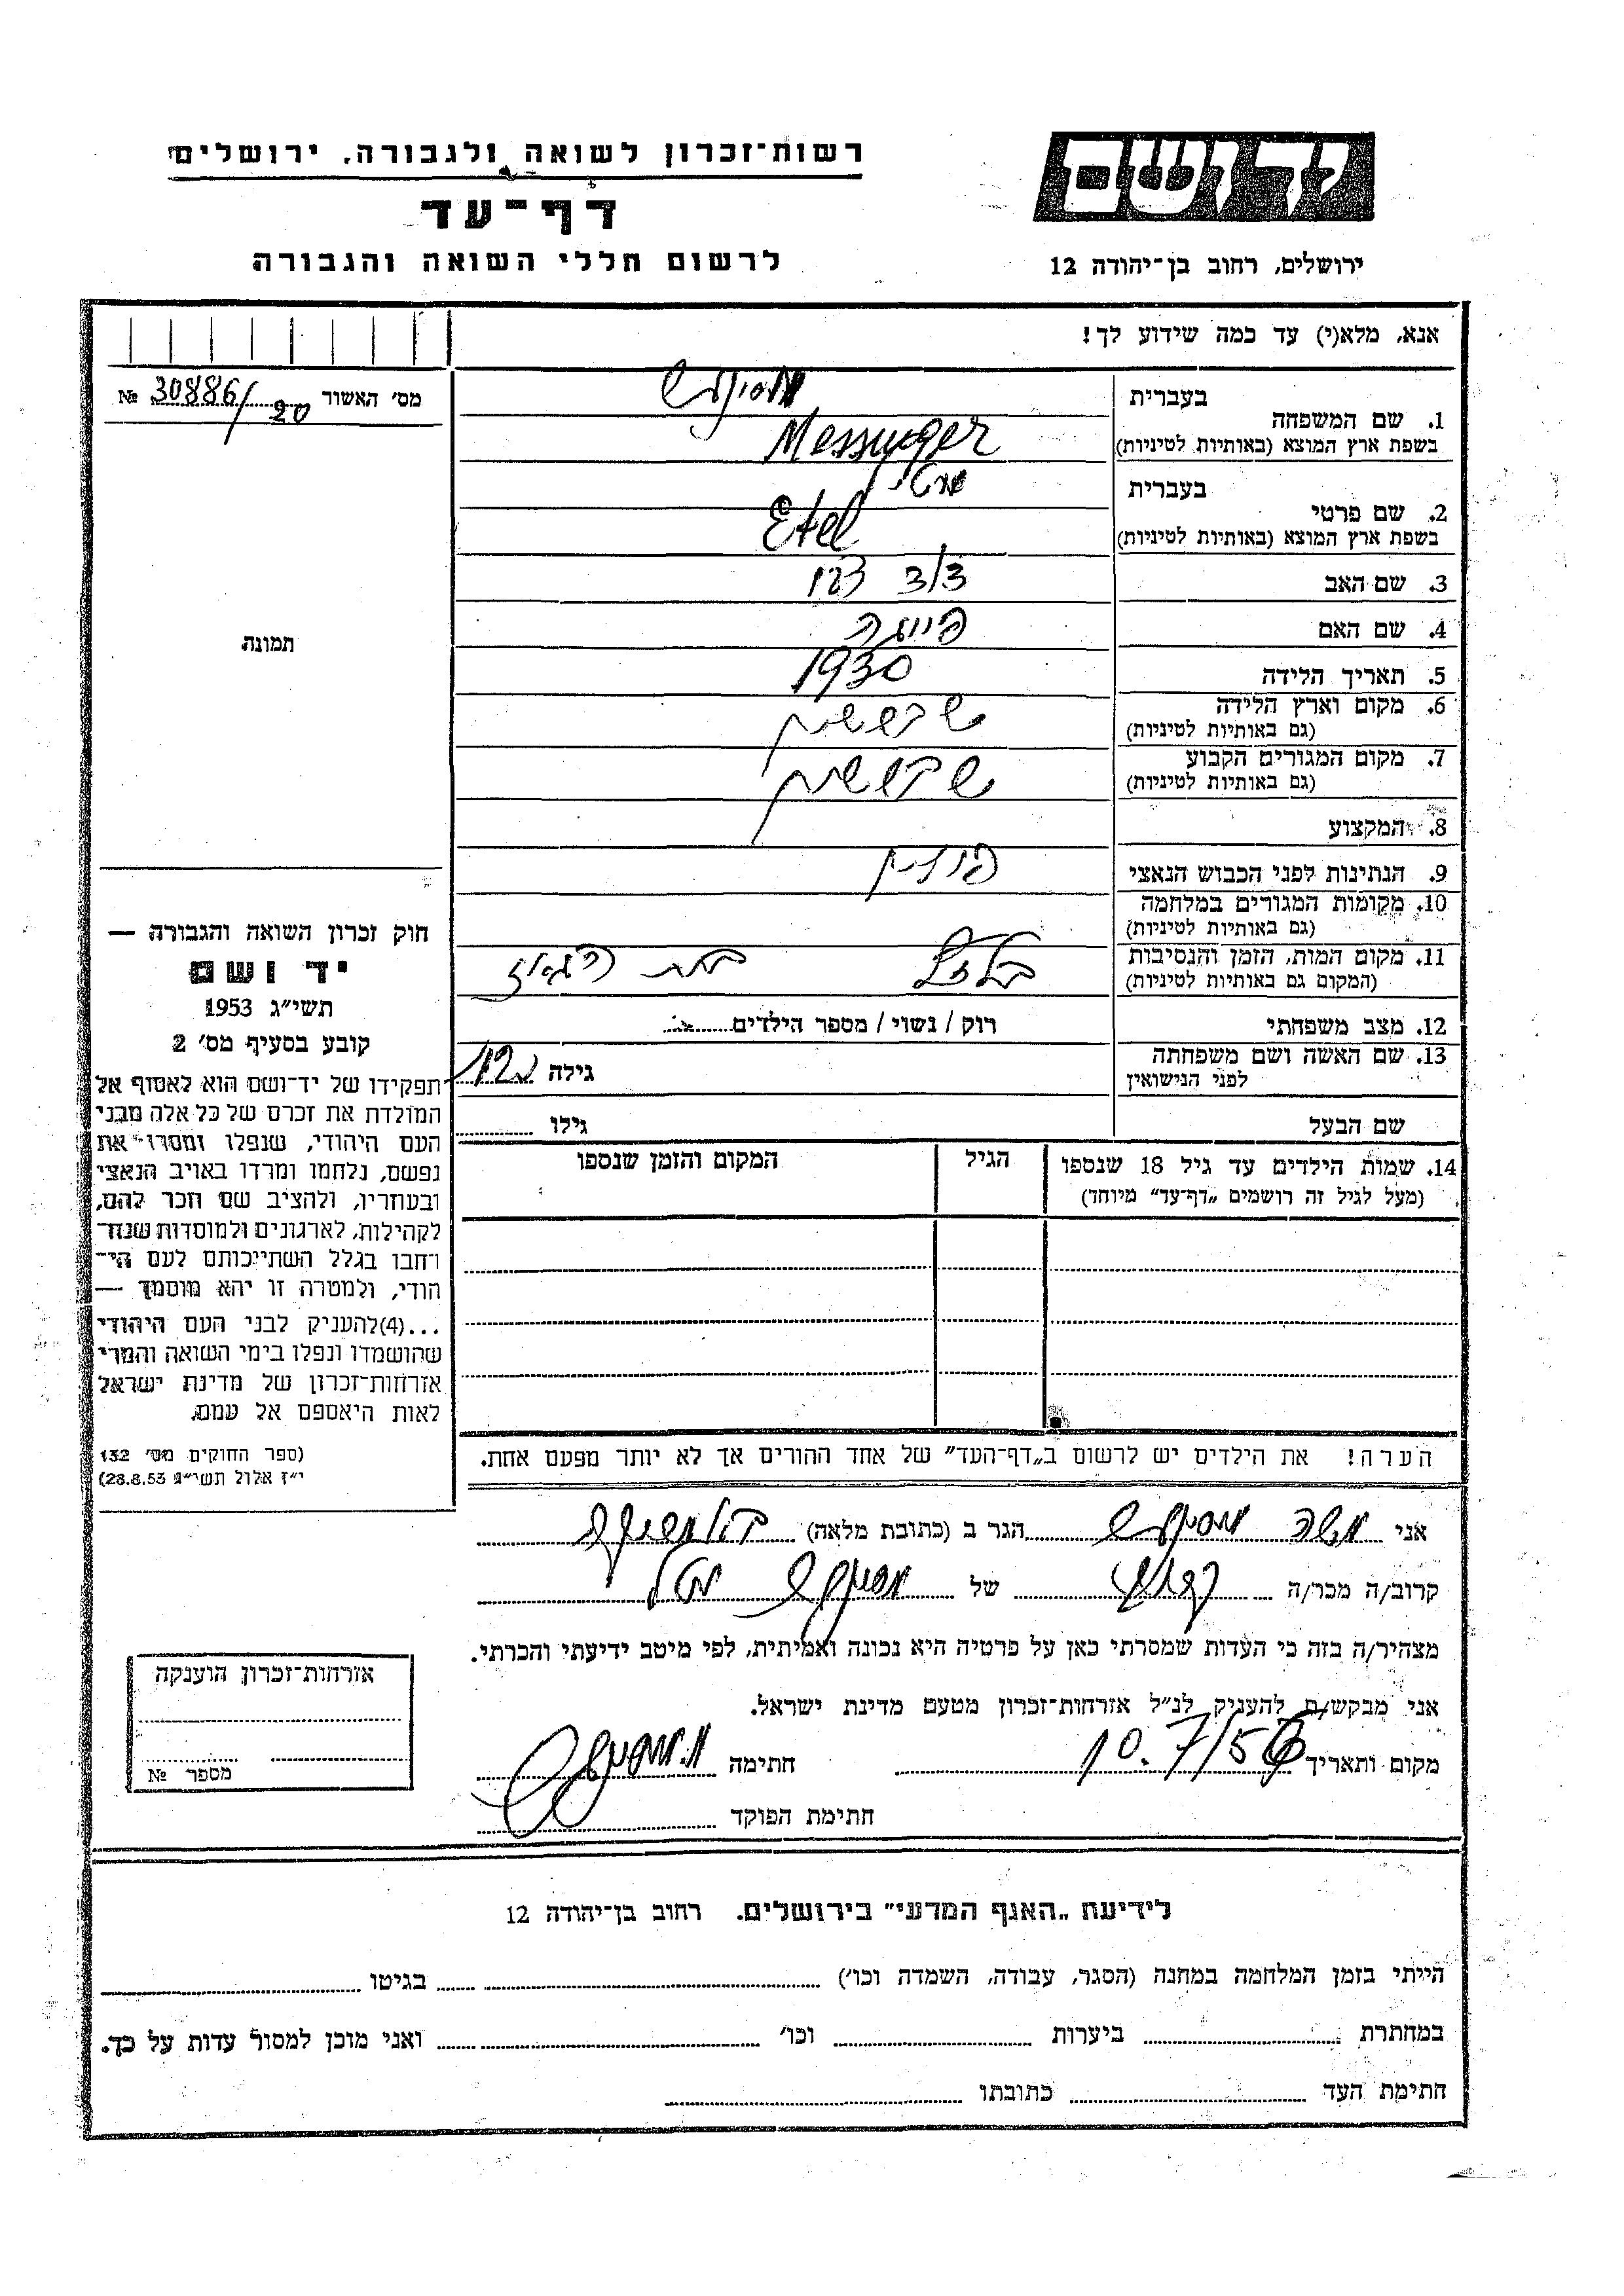 רשות־זכרון לשואה ולגבורה, ירושלים
דף־עד
לרשום חללי השואה והגבורה
יד ושם
ירושלים, רחוב בן־יהודה 12
אנא, מלא(י) עד כמה שידוע לך!
מס׳ האשור 30886/20 №
1. שם המשפחה
בעברית
בשפת ארץ המוצא (באותיות לטיניות) Messinger
2. שם פרטי
בעברית אטל
בשפת ארץ המוצא (באותיות לטיניות) Etel
3. שם האב
4. שם האם פייגה
5. תאריך הלידה 1930
6. מקום וארץ הלידה
(גם באותיות לטיניות)
7. מקום המגורים הקבוע
(גם באותיות לטיניות)
8. המקצוע
9. הנתינות לפני הכבוש הנאצי פולין
10. מקומות המגורים במלחמה
(גם באותיות לטיניות)
11. מקום המות, הזמן והנסיבות
(המקום גם באותיות לטיניות)
12. מצב משפחתי רוק / נשוי / מספר הילדים
13. שם האשה ושם משפחתה גילה
לפני הנישואין
שם הבעל גילו
14. שמות הילדים עד גיל 18 שנספו
(מעל לגיל זה רושמים „דף־עד” מיוחד)
הגיל
המקום והזמן שנספו
הערה! את הילדים יש לרשום ב„דף־העד” של אחד ההורים אך לא יותר מפעם אחת.
תמונה
חוק זכרון השואה והגבורה —
יד ושם
תשי״ג 1953
קובע בסעיף מס׳ 2
תפקידו של יד־ושם הוא לאסוף אל
המולדת את זכרם של כל אלה מבני
העם היהודי, שנפלו ומסרו את
נפשם, נלחמו ומרדו באויב הנאצי
ובעוזריו, ולהציב שם וזכר להם,
לקהילות, לארגונים ולמוסדות שנח־
רחבו בגלל השתייכותם לעם הי־
הודי, ולמטרה זו יהא מוסמך —
...(4)להעניק לבני העם היהודי
שהושמדו ונפלו בימי השואה והמרי
אזרחות־זכרון של מדינת ישראל
לאות היאספם אל עמם.
(ספר החוקים מס׳ 132
י״ז אלול תשי״ג 28.8.53)
אני משה מסינגר הגר ב (כתובת מלאה)
קרוב/ה מכר/ה של מסינגר אטל
מצהיר/ה בזה כי העדות שמסרתי כאן על פרטיה היא נכונה ואמיתית, לפי מיטב ידיעתי והכרתי.
אני מבקש/ם להעניק לנ״ל אזרחות־זכרון מטעם מדינת ישראל.
מקום ותאריך 10.7/56 חתימה
חתימת הפוקד
אזרחות־זכרון הוענקה
מספר №
לידיעת „האגף המדעי” בירושלים. רחוב בן־יהודה 12
הייתי בזמן המלחמה במחנה (הסגר, עבודה, השמדה וכו׳) בגיטו
במחתרת ביערות וכו׳ ואני מוכן למסור עדות על כך.
חתימת העד כתובתו